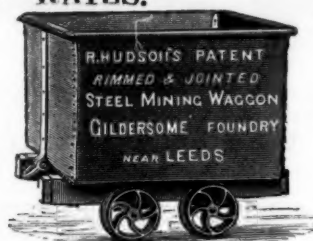 RATES.
R.HUDSON'S PATENT
RIMMED & JOINTED
STEEL MINING WAGGON
GILDERSOME FOUNDRY
NEAR LEEDS